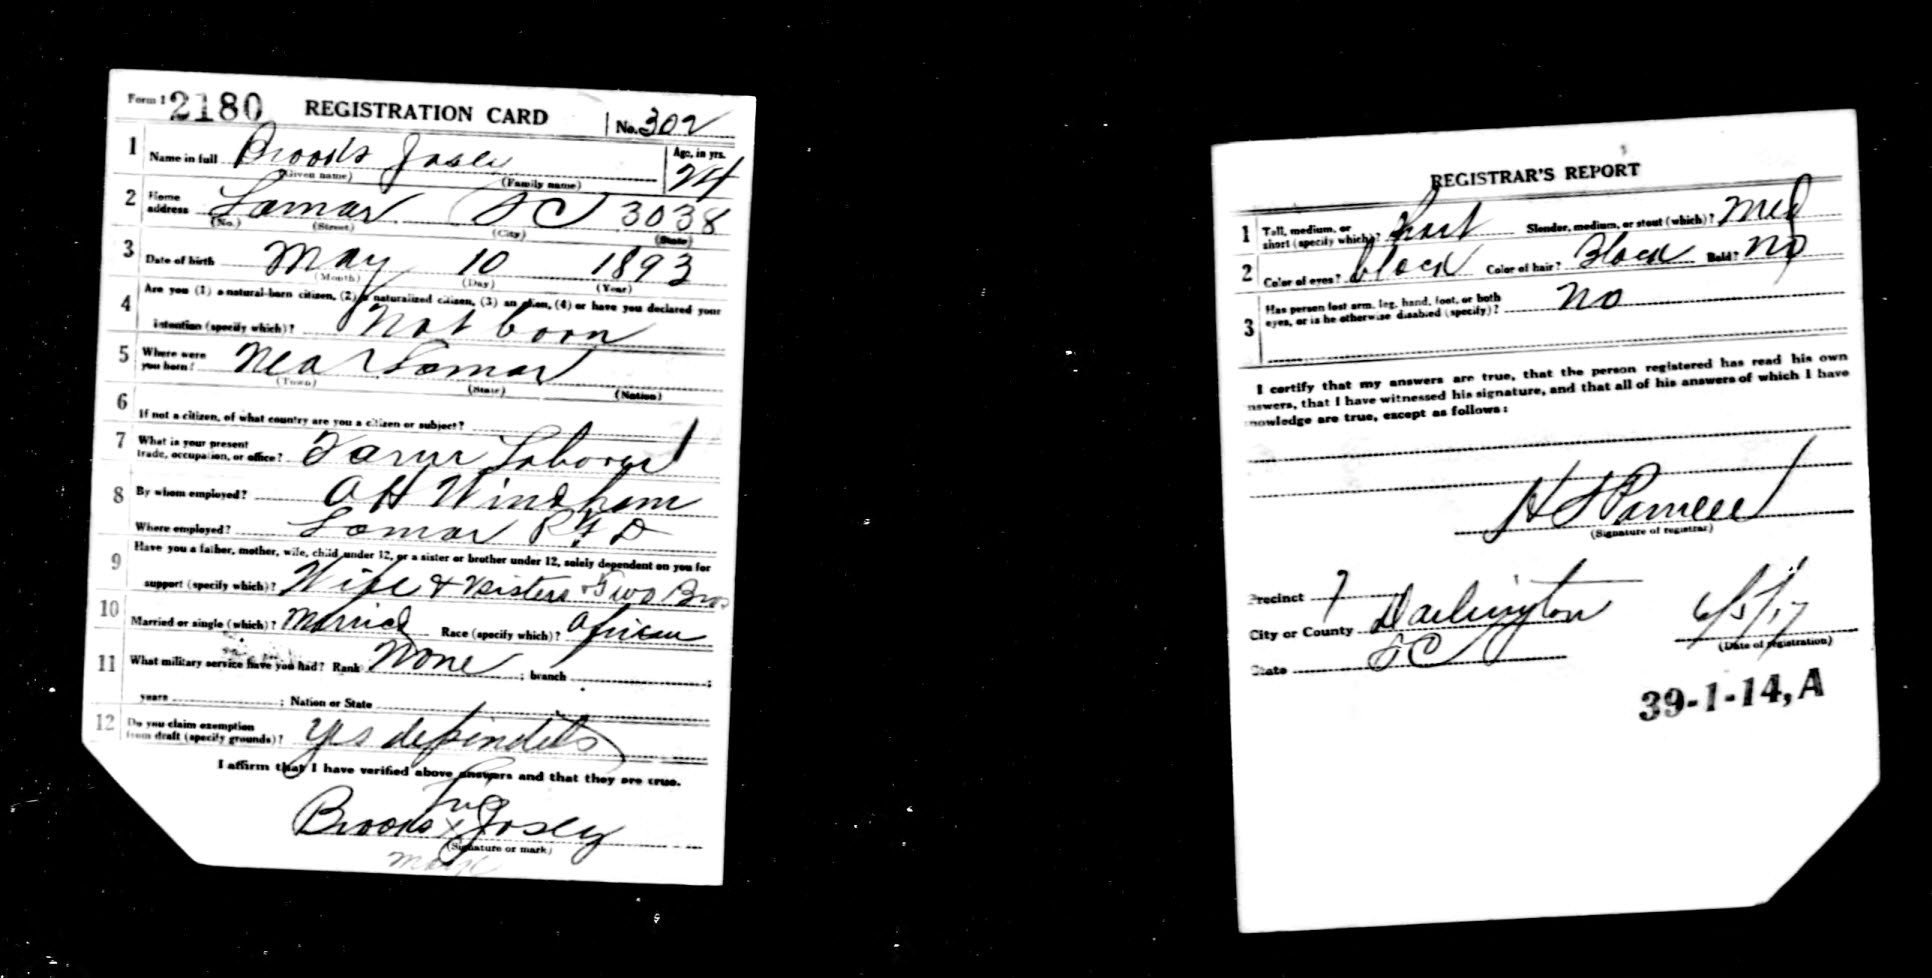 Form 1 2180 REGISTRATION CARD No. 302
1 Name in full Brooks Josey Age, in yrs. 24
(Given name) (Family name)
2 Home address Lamar SC 3038
(No.) (Street) (City) (State)
3 Date of birth May 10 1893
(Month) (Day) (Year)
4 Are you (1) a natural-born citizen, (2) a naturalized citizen, (3) an alien, (4) or have you declared your
intention (specify which)? Nat born
5 Where were you born? Near Lamar
(Town) (State) (Nation)
6 If not a citizen, of what country are you a citizen or subject?
7 What is your present trade, occupation, or office? Farm Laborer
8 By whom employed? A H Windham
Where employed? Lamar RFD
9 Have you a father, mother, wife, child under 12, or a sister or brother under 12, solely dependent on you for
support (specify which)? Wife & Sisters & Two Bros
10 Married or single (which)? Married Race (specify which)? African
11 What military service have you had? Rank None ; branch ;
years ; Nation or State
12 Do you claim exemption from draft (specify grounds)? Yes
I affirm that I have verified above answers and that they are true.
his
Brooks x Josey
(Signature or mark)
mark
REGISTRAR'S REPORT
1 Tall, medium, or short (specify which)? Short Slender, medium, or stout (which)? Med
2 Color of eyes? black Color of hair? Black Bald? No
3 Has person lost arm, leg, hand, foot, or both
eyes, or is he otherwise disabled (specify)? No
I certify that my answers are true, that the person registered has read his own
nswers, that I have witnessed his signature, and that all of his answers of which I have
nowledge are true, except as follows:
H S Parnell
(Signature of registrar)
Precinct 7
City or County Darlington 6/5/17
State SC (Date of registration)
39-1-14, A